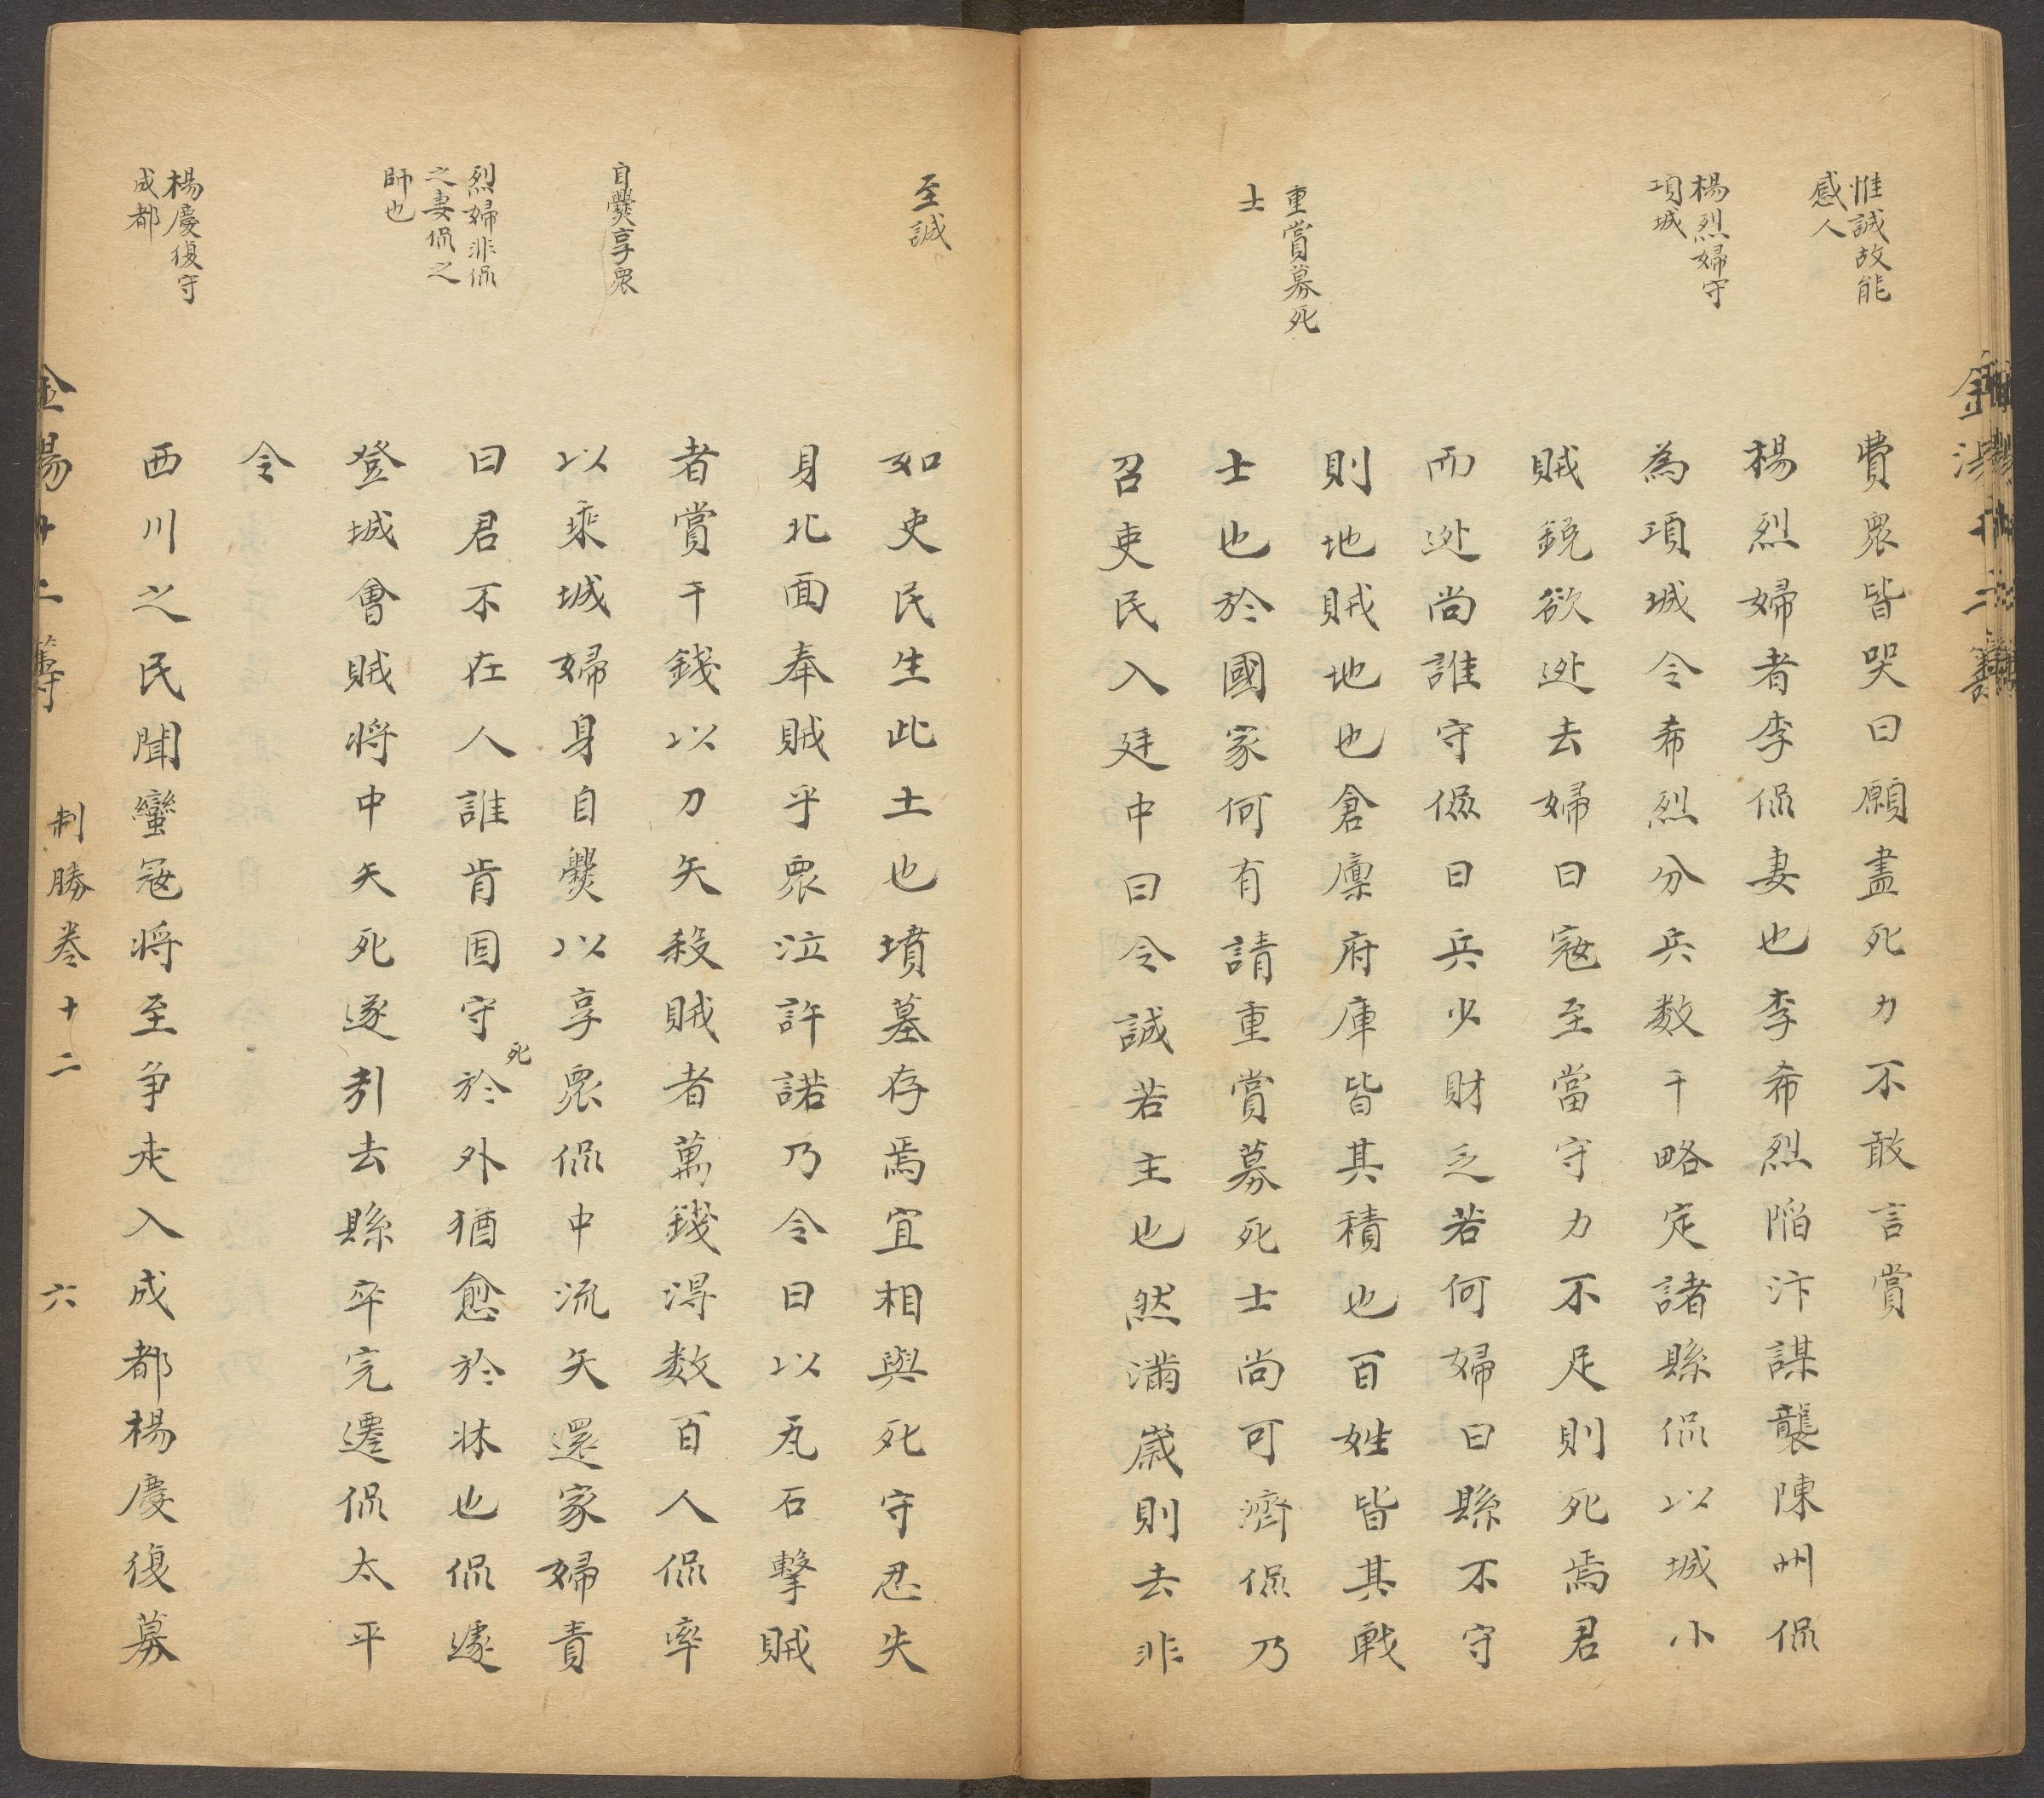 惟誠故能
感人
楊烈婦守
項城
重賞募死
士
費眾皆哭曰願盡死力不敢言賞
楊烈婦者李侃妻也李希烈陷汴謀襲陳州侃
為項城令希烈分兵数千略定諸縣侃以城小
賊銳欲逃去婦曰寇至當守力不足則死焉君
而逃尚誰守侃曰兵少財乏若何婦曰縣不守
則地賊地也倉廩府庫皆其積也百姓皆其戰
士也於國家何有請重賞募死士尚可濟侃乃
召吏民入廷中曰令誠若主也然滿歲則去非
至誠
自爨享眾
烈婦非侃
之妻侃之
師也
楊慶復守
成都
如吏民生此土也墳墓存焉宜相與死守忍失
身北面奉賊乎眾泣許諾乃令曰以瓦石擊賊
者賞千錢以刀矢殺賊者萬錢得数百人侃率
以乘城婦身自爨以享眾侃中流矢還家婦責
曰君不在人誰肯固守死於外猶愈於牀也侃遽
登城會賊將中矢死遂引去縣卒完遷侃太平
令
西川之民聞蠻寇将至争走入成都楊慶復募
金湯十二籌
制勝卷十二
六